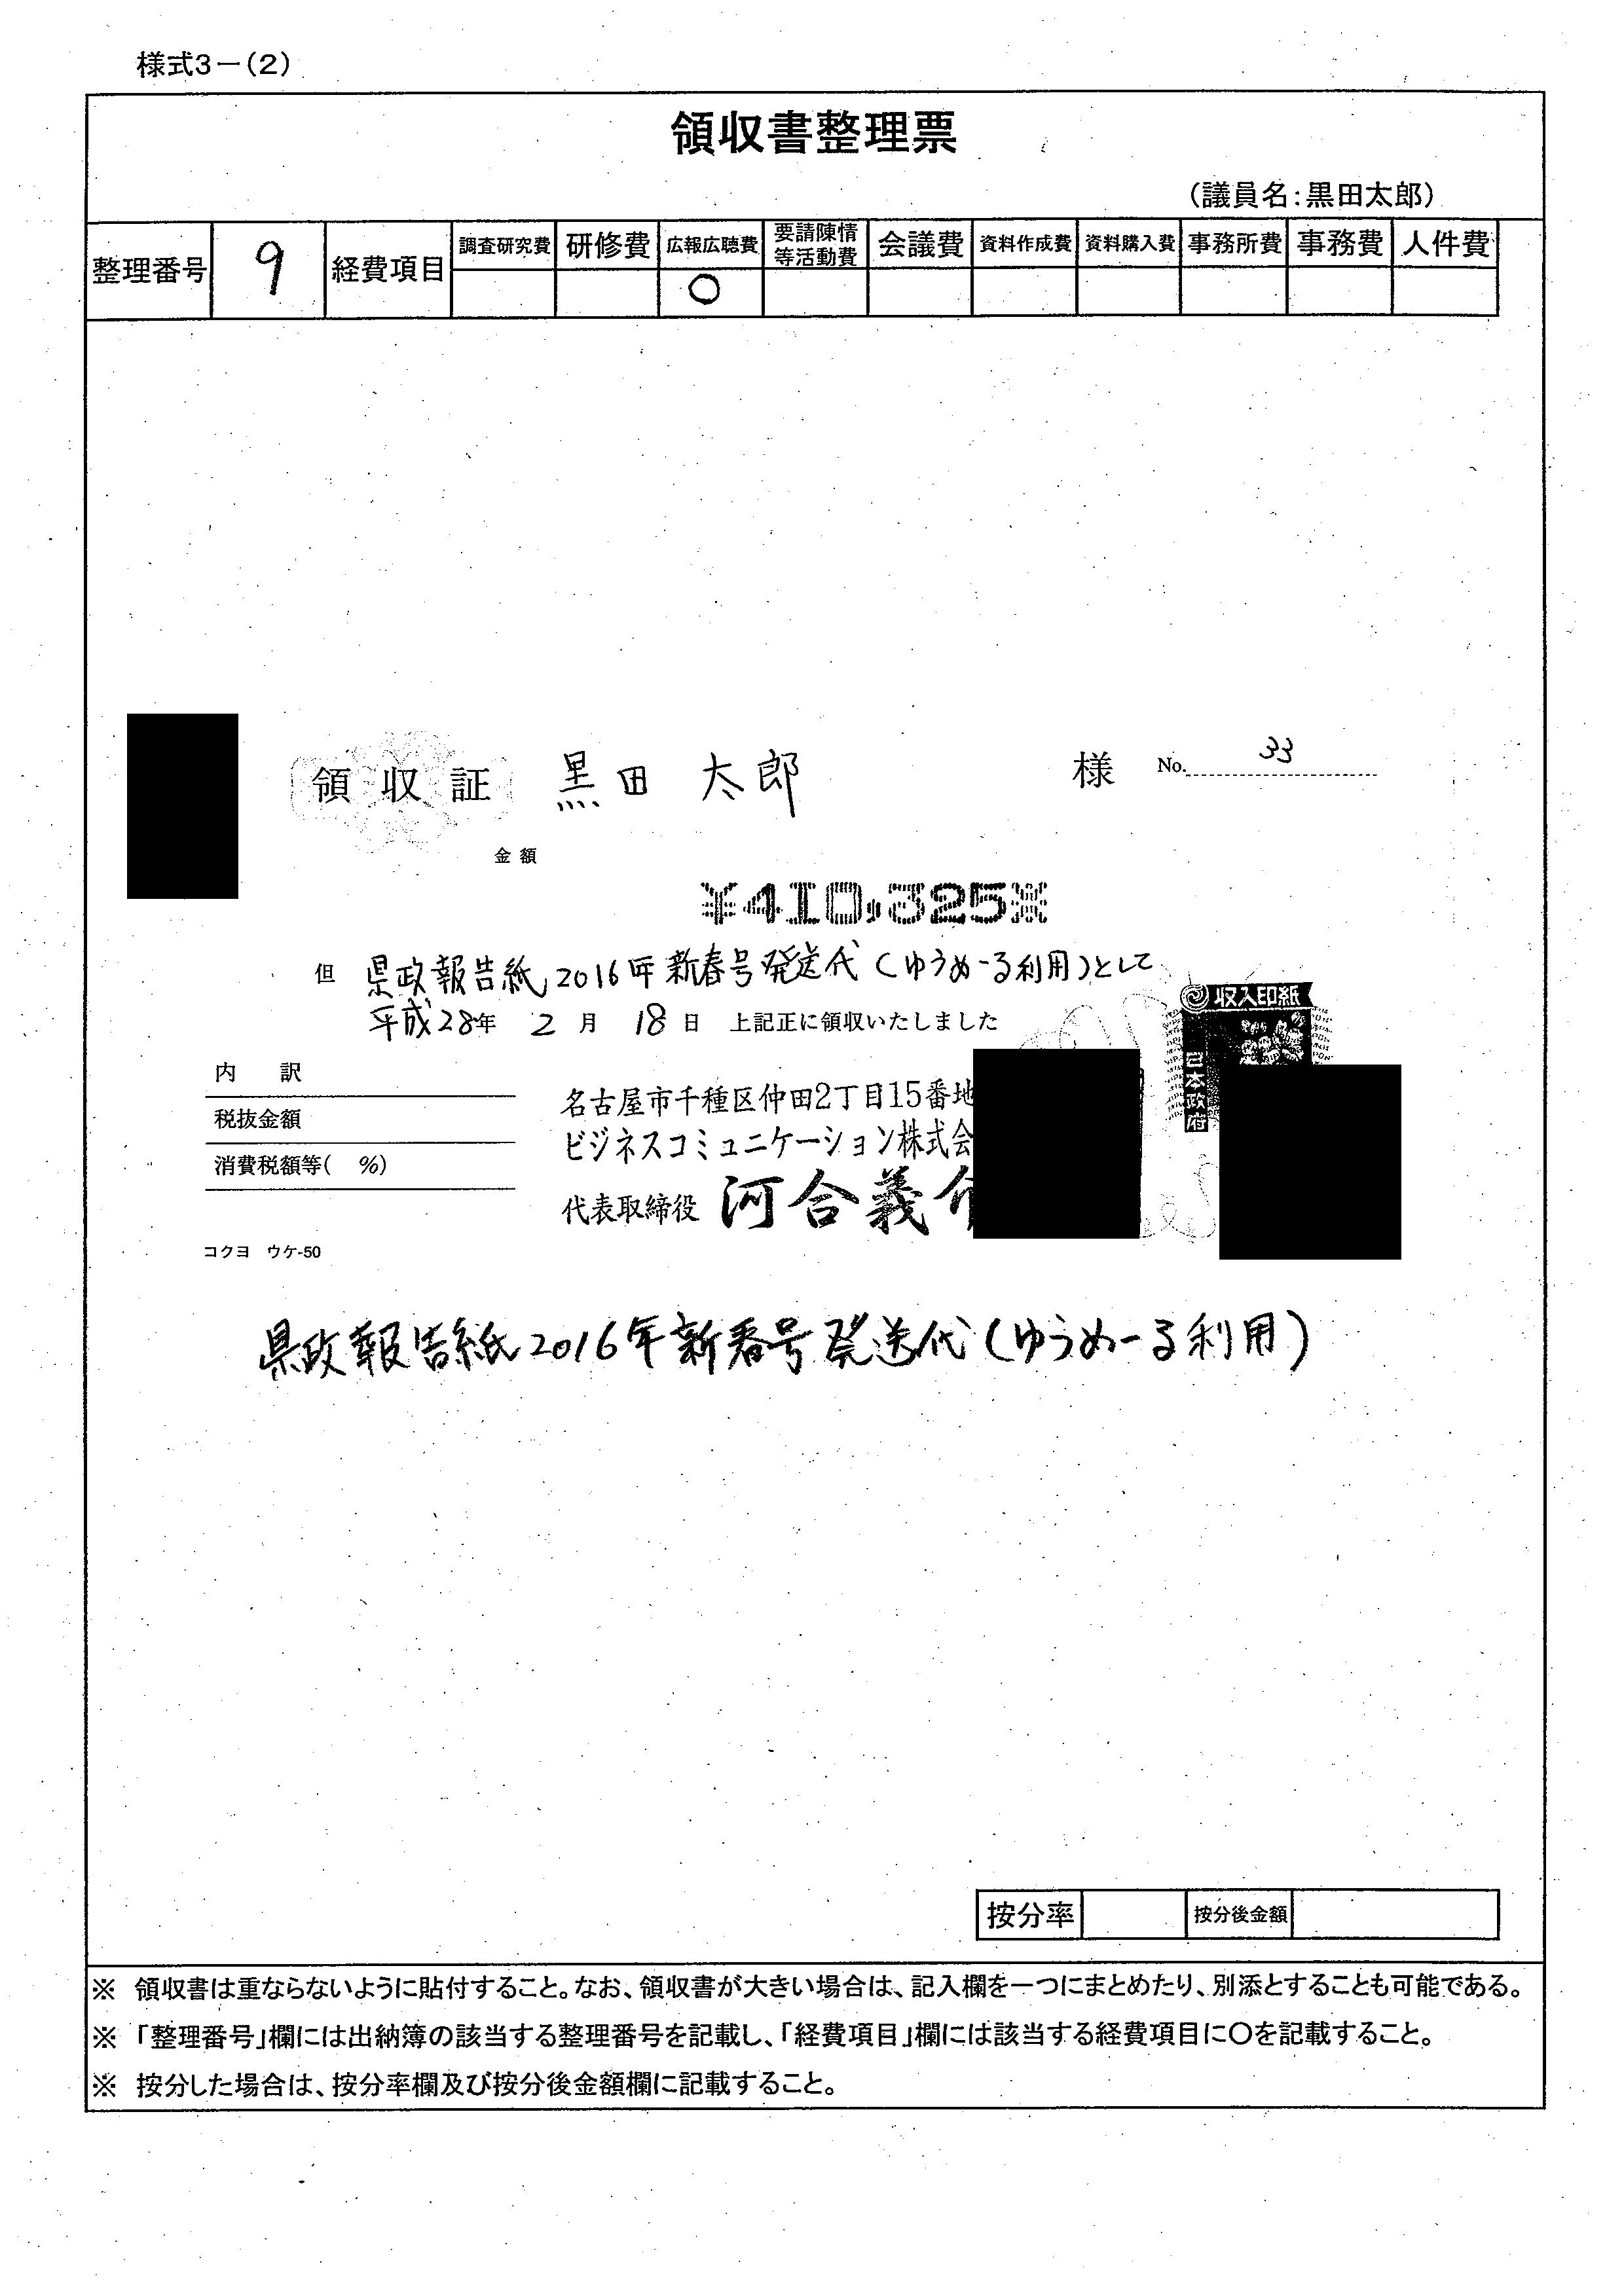 様式3－(2)
領収書整理票
(議員名:黒田太郎)
整理番号 9 経費項目 調査研究費 研修費 広報広聴費 要請陳情等活動費 会議費 資料作成費 資料購入費 事務所費 事務費 人件費
○
領収証 黒田 太郎 様 No. 33
金額
¥410,325※
但 県政報告紙2016年新春号発送代(ゆうめーる利用)として
平成28年 2月 18日 上記正に領収いたしました
収入印紙
日本政府
内 訳
税抜金額
消費税額等( %)
名古屋市千種区仲田2丁目15番地
ビジネスコミュニケーション株式会
代表取締役 河合義
コクヨ ウケ-50
県政報告紙2016年新春号発送代(ゆうめーる利用)
按分率 按分後金額
※ 領収書は重ならないように貼付すること。なお、領収書が大きい場合は、記入欄を一つにまとめたり、別添とすることも可能である。
※ 「整理番号」欄には出納簿の該当する整理番号を記載し、「経費項目」欄には該当する経費項目に○を記載すること。
※ 按分した場合は、按分率欄及び按分後金額欄に記載すること。